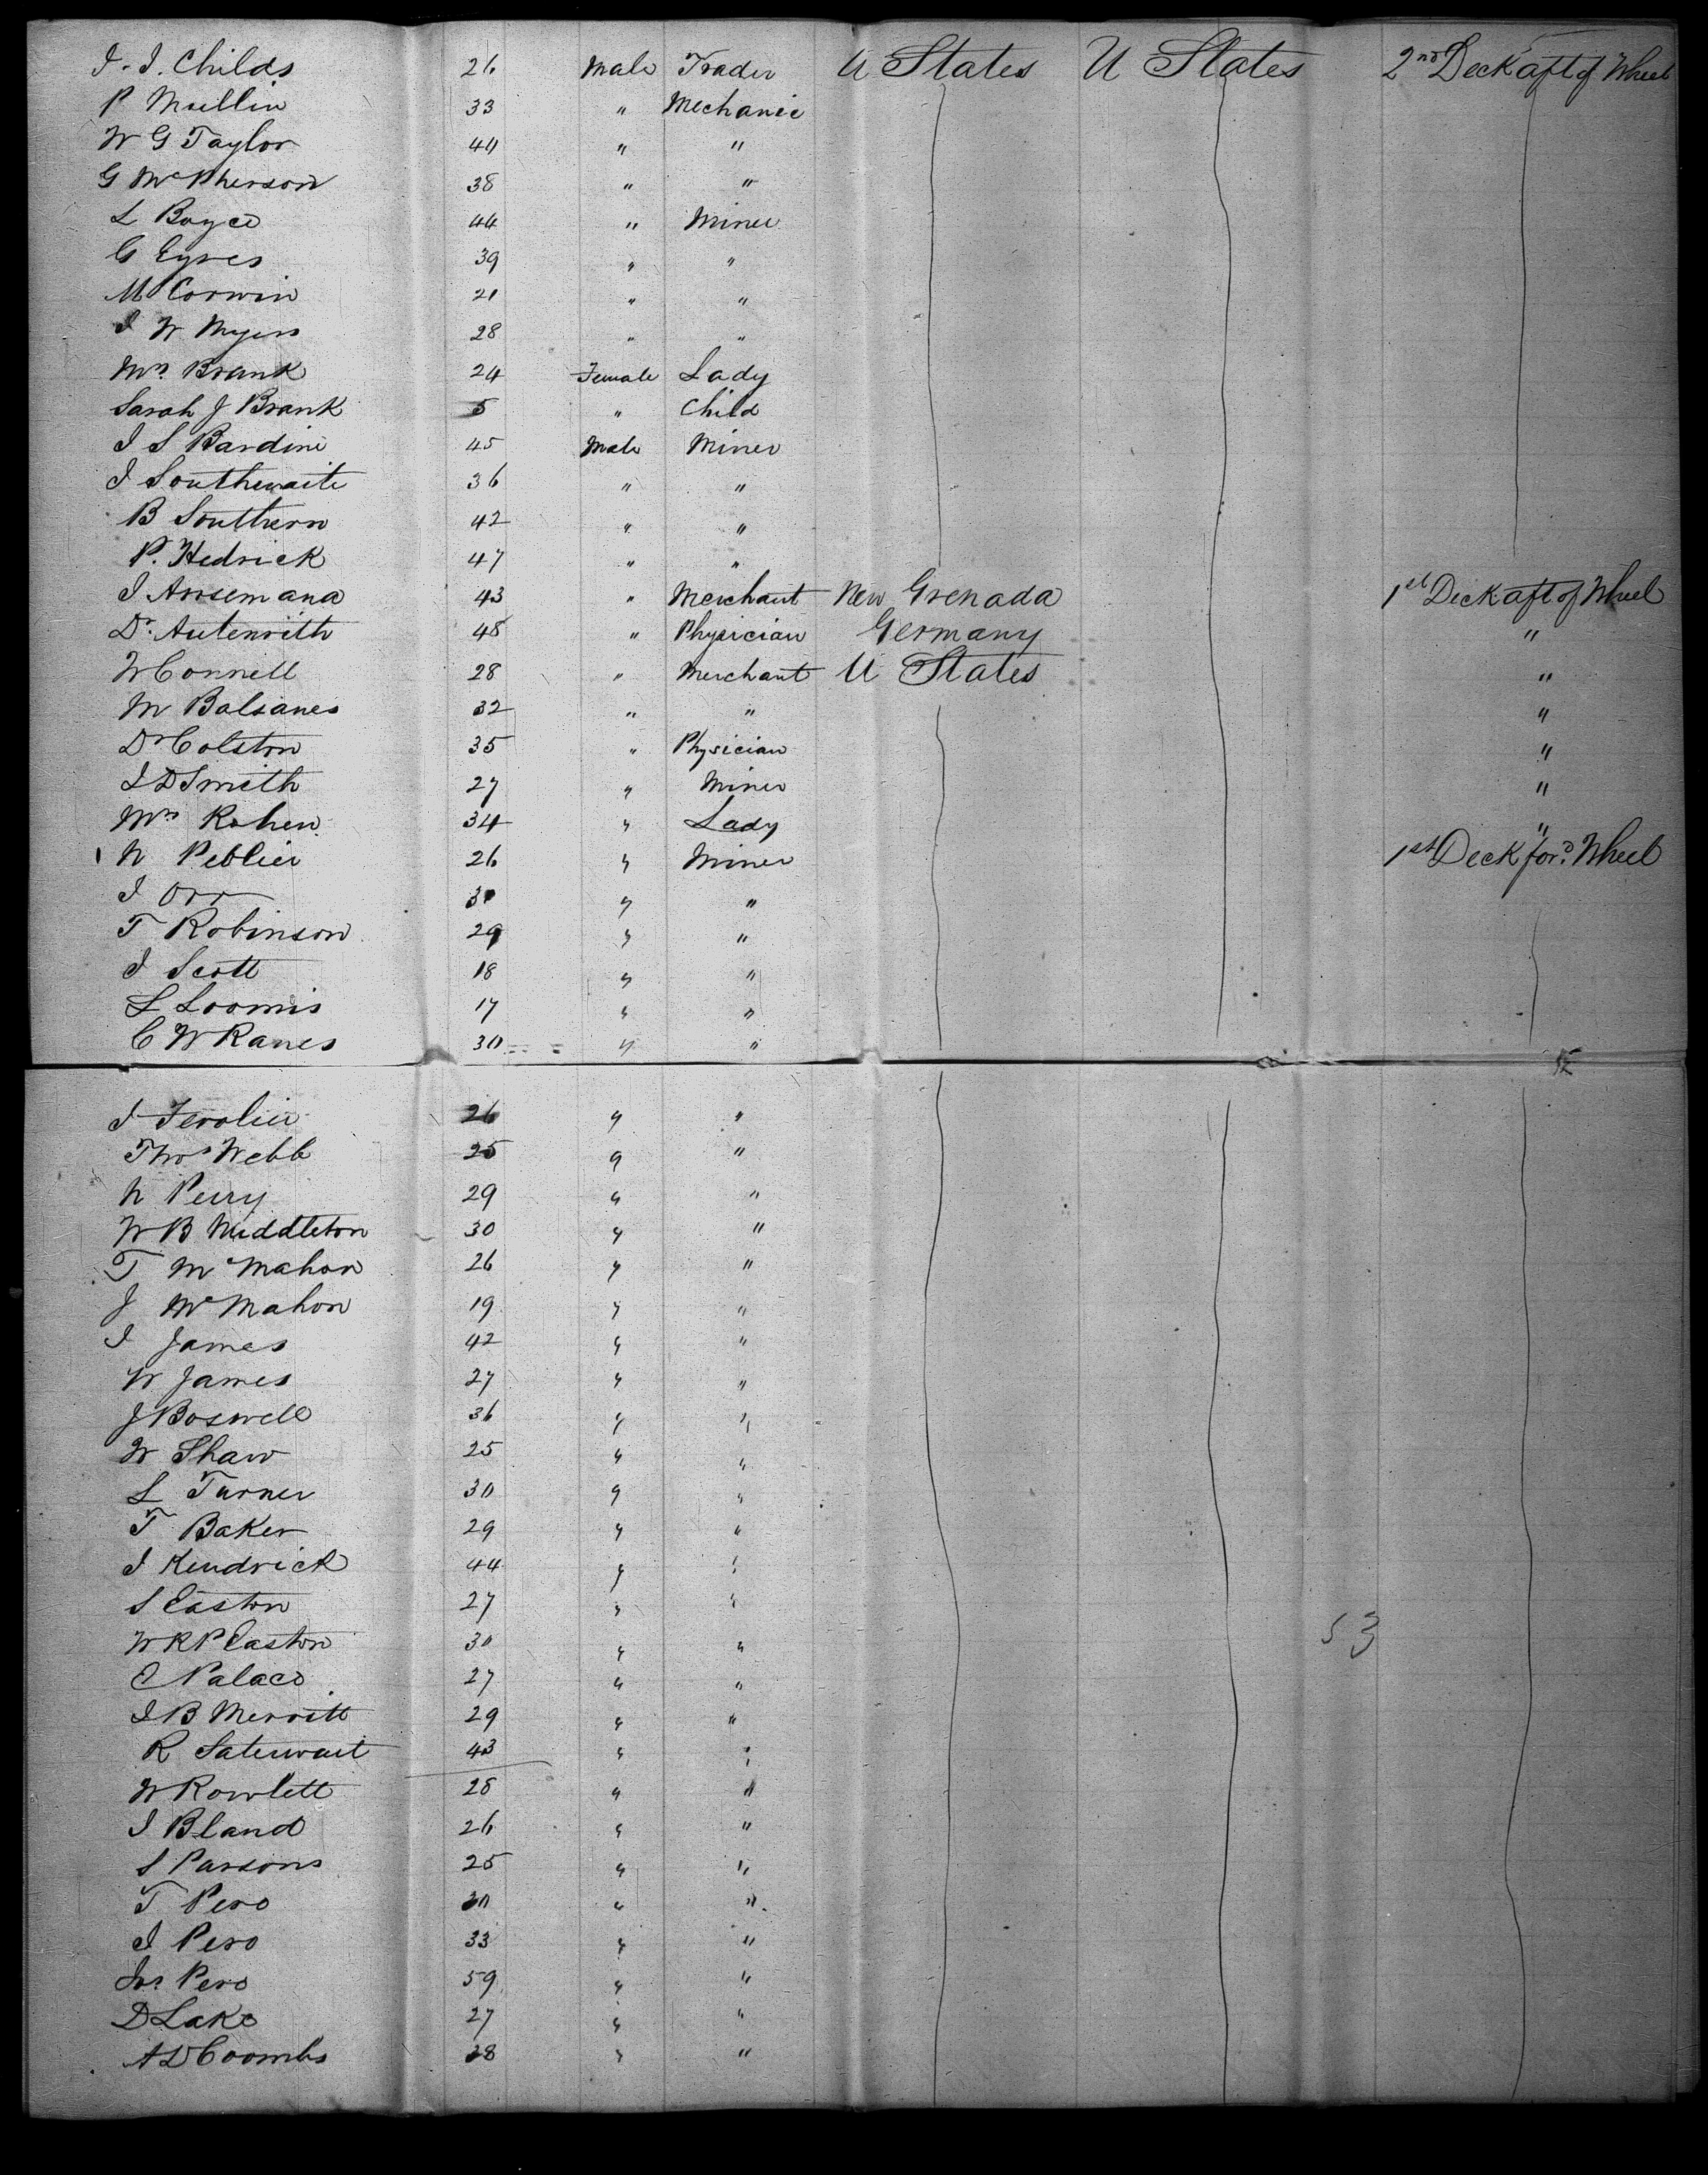 I. I. Childs 26 Male Trader U States U States 2nd Deck aft of Wheel
P Mullin 33 " Mechanic
W G Taylor 40 " "
G McPherson 38 " "
L Boyce 44 " Miner
G Eyres 39 " "
M Corwin 21 " "
I W Myers 28 " "
Mrs Brank 24 Female Lady
Sarah J Brank 5 " Child
I S Bardine 45 Male Miner
I Southewaite 36 " "
B Southern 42 " "
P. Hedrick 47 " "
I Arosemana 43 " Merchant New Grenada 1st Deck aft of Wheel
Dr. Autenrith 48 " Physician Germany "
W Connell 28 " Merchant U States "
M Balsanes 32 " " "
Dr Colston 35 " Physician "
I D Smith 27 " Miner "
Mrs Rohen 34 " Lady "
N Peblier 26 " Miner 1st Deck for.d Wheel
I Orr 30 " "
T Robinson 29 " "
I Scott 18 " "
L Loomis 17 " "
C W Ranes 30 " "
I Ferolier 26 " "
Thos Webb 25 " "
N Perry 29 " "
W B Middleton 30 " "
T McMahon 26 " "
J McMahon 19 " "
I James 42 " "
W James 27 " "
J Boswell 36 " "
W Shaw 25 " "
L Turner 30 " "
T Baker 29 " "
I Kendrick 44 " "
S Easton 27 " "
W R P Easton 30 " " 53
C Palace 27 " "
I B Merritt 29 " "
R Saterwait 43 " "
W Rowlett 28 " "
I Bland 26 " "
S Parsons 25 " "
T Pero 30 " "
I Pero 33 " "
Jos Pero 59 " "
D Lake 27 " "
A D Coombs 28 " "